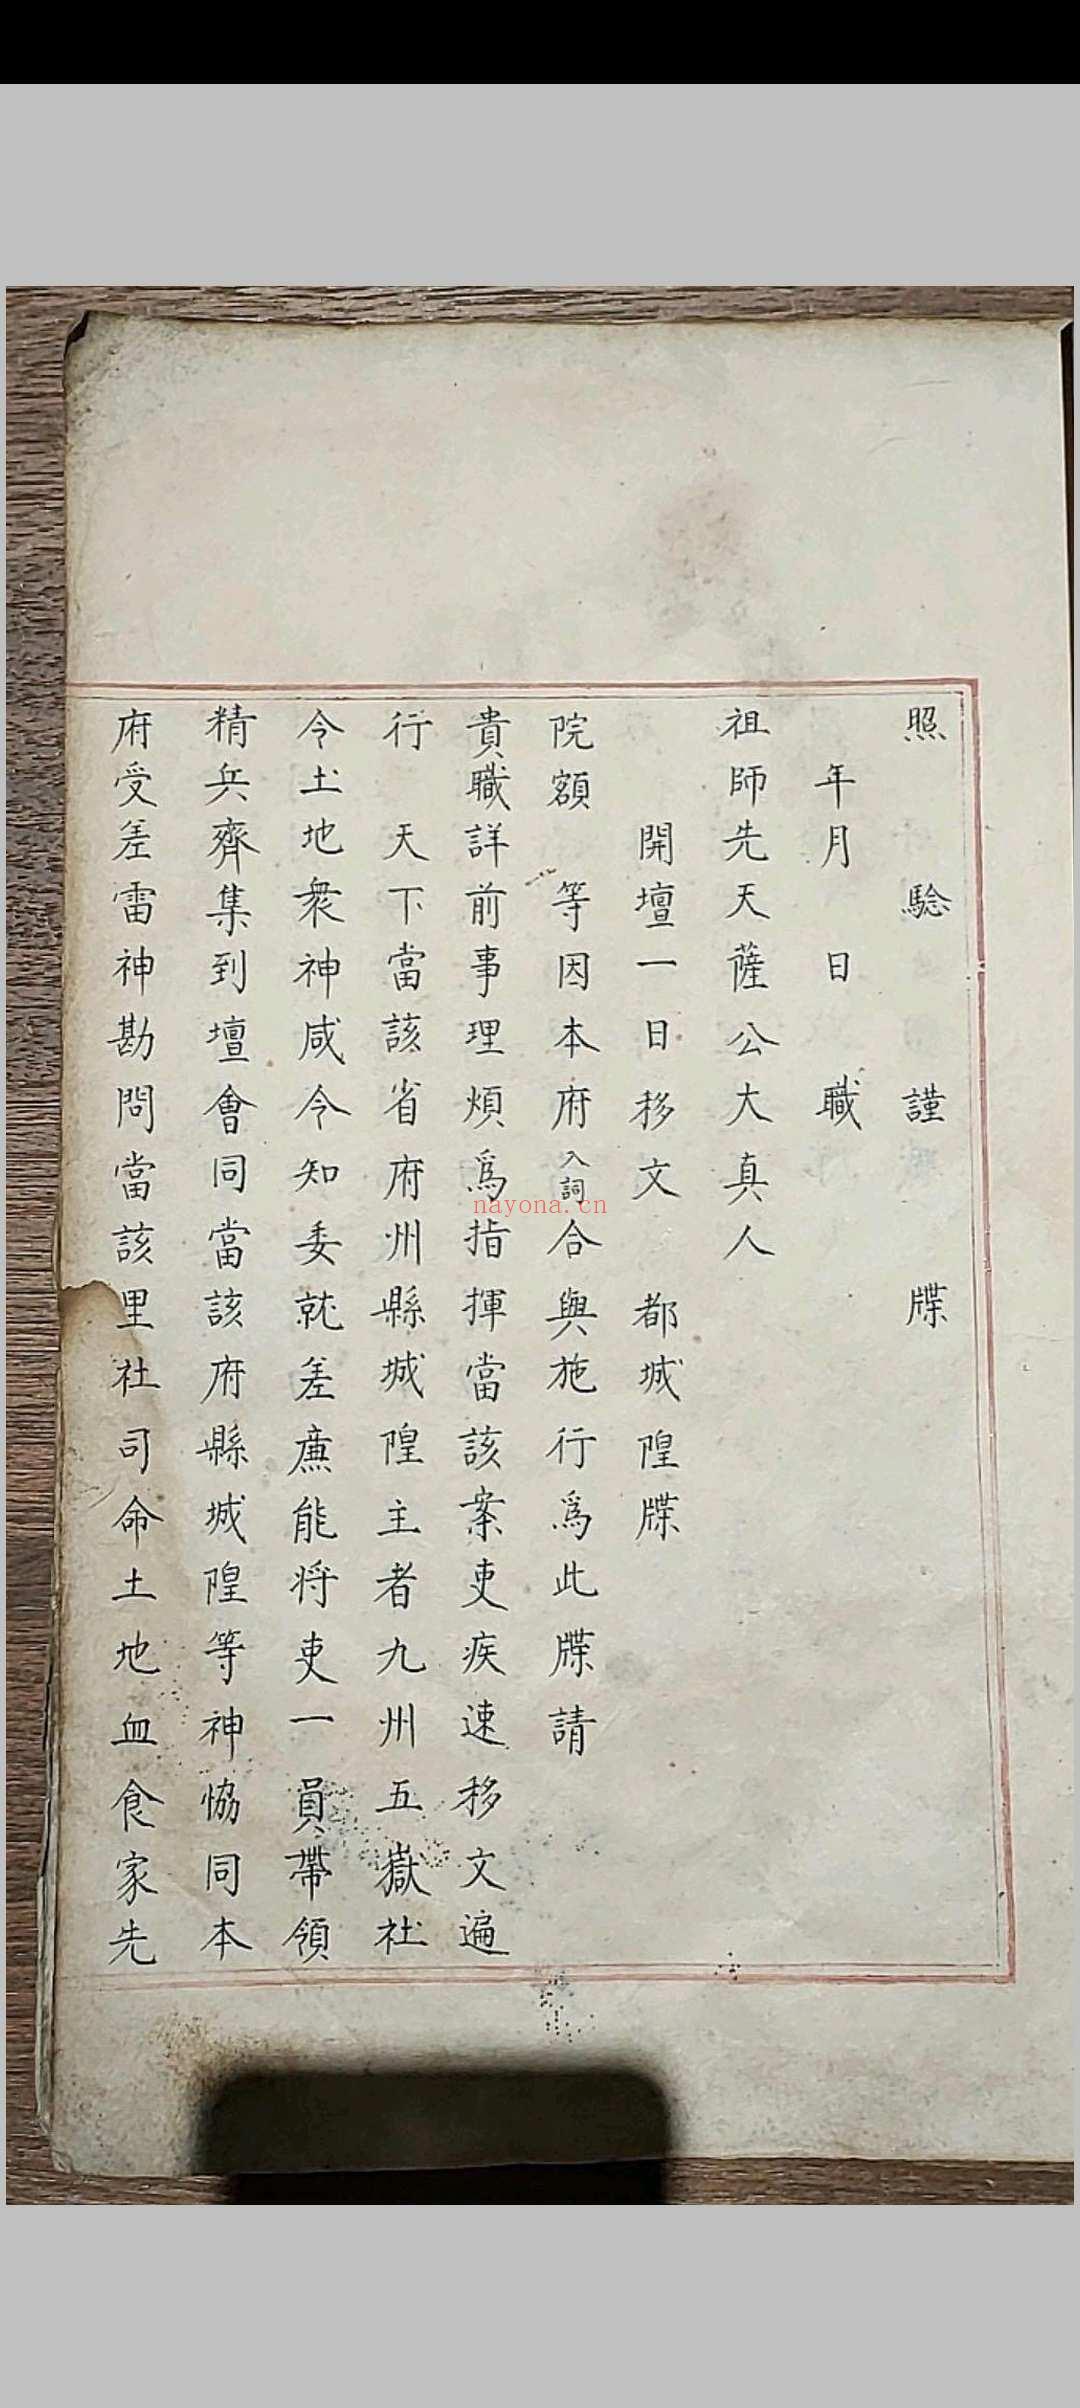 照驗謹牒
年月日職
祖師先天薩公大真人
開壇一日移文 都城隍牒
院額 等因本府入詞合與施行爲此牒請
貴職詳前事理煩爲指揮當該案吏疾速移文遍
行 天下當該省府州縣城隍主者九州五嶽社
令土地衆神咸令知委就差㢘能将吏一員帶領
精兵齊集到壇會同當該府縣城隍等神恊同本
府受差雷神勘問當該里社司命土地血食家先
nayona.cn